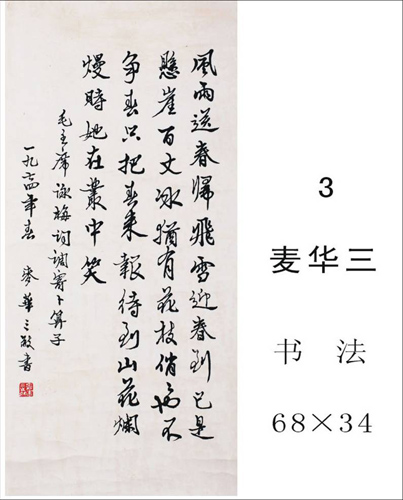 風雨送春歸飛雪迎春到已是
懸崖百丈冰猶有花枝俏俏不
争春只把春来報待到山花爛
熳時她在叢中笑
毛主席詠梅詞調寄卜算子
一九六四年春 麥華三敬書
3
麦华三
书 法
68×34